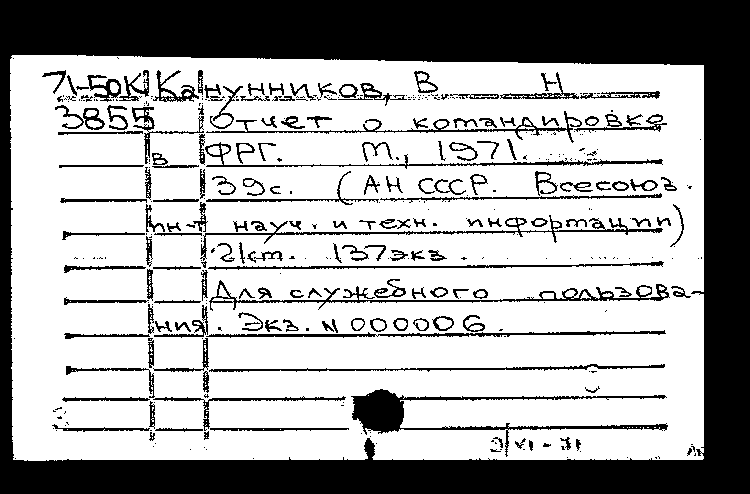 71-50К Канунников, В Н
3855 Отчет о командировке
в ФРГ. М., 1971.
39с. (АН СССР. Всесоюз.
ин-т науч. и техн. информации)
21см. 137экз.
Для служебного пользова-
ния. Экз. N 000006.
9/VI - 71